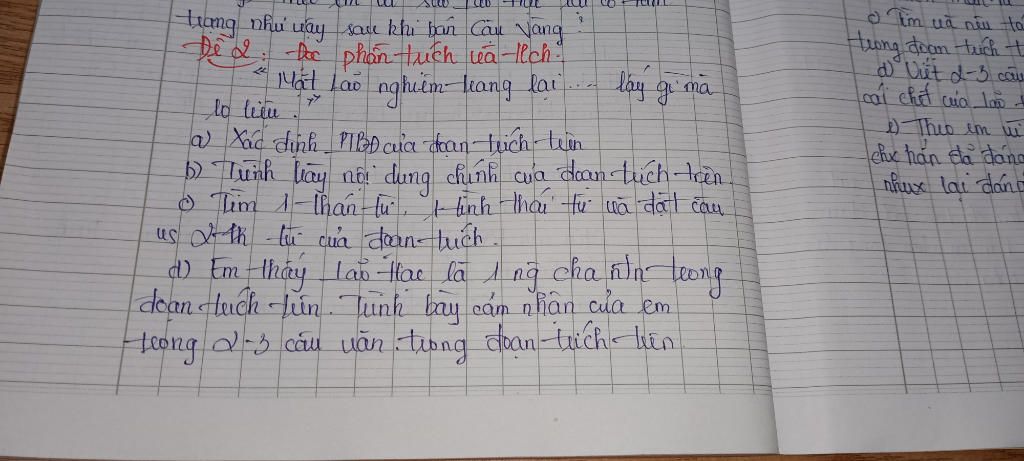 trạng như vậy sau khi bán Cậu Vàng?
Đề 2: Đọc phần trích và tlch.
"Mặt Lão nghiêm trang lại ... lấy gì mà
lo liệu."
a) Xác định PTBĐ của đoạn trích trên
b) Trình bày nội dung chính của đoạn trích trên.
c) Tìm 1 thán từ, 1 tình thái từ và đặt câu
vs 2 từ của đoạn trích.
d) Em thấy Lão Hạc là 1 ng cha ntn trong
đoạn trích trên. Trình bày cảm nhận của em
trong 2-3 câu văn trong đoạn trích trên.
c) Tìm và nêu
trong đoạn trích
d) Viết 2-3 câu
cái chết của lão
e) Theo em vì